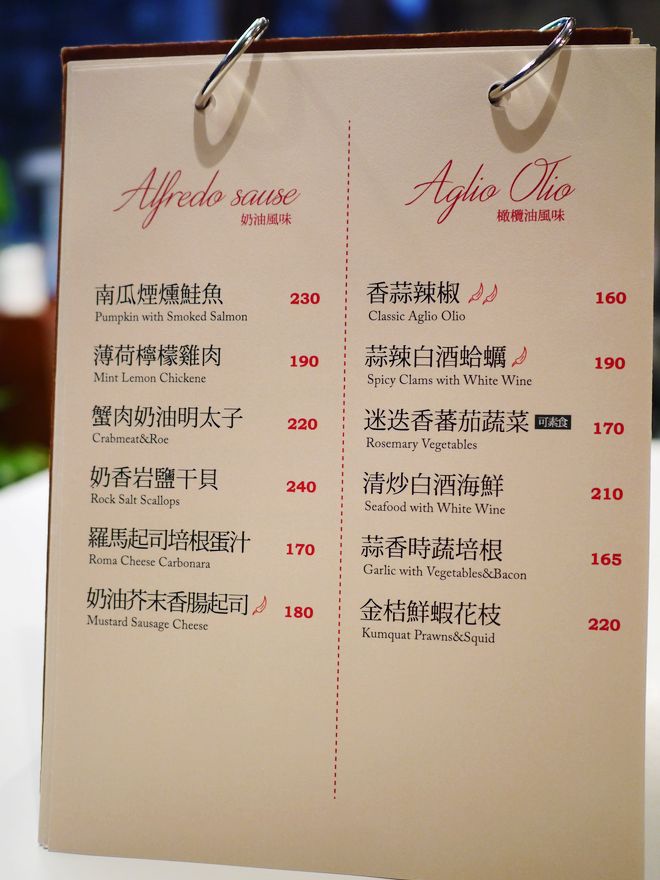 Alfredo sause
奶油風味
南瓜煙燻鮭魚 230
Pumpkin with Smoked Salmon
薄荷檸檬雞肉 190
Mint Lemon Chickene
蟹肉奶油明太子 220
Crabmeat&Roe
奶香岩鹽干貝 240
Rock Salt Scallops
羅馬起司培根蛋汁 170
Roma Cheese Carbonara
奶油芥末香腸起司 180
Mustard Sausage Cheese
Aglio Olio
橄欖油風味
香蒜辣椒 160
Classic Aglio Olio
蒜辣白酒蛤蠣 190
Spicy Clams with White Wine
迷迭香蕃茄蔬菜 可素食 170
Rosemary Vegetables
清炒白酒海鮮 210
Seafood with White Wine
蒜香時蔬培根 165
Garlic with Vegetables&Bacon
金桔鮮蝦花枝 220
Kumquat Prawns&Squid